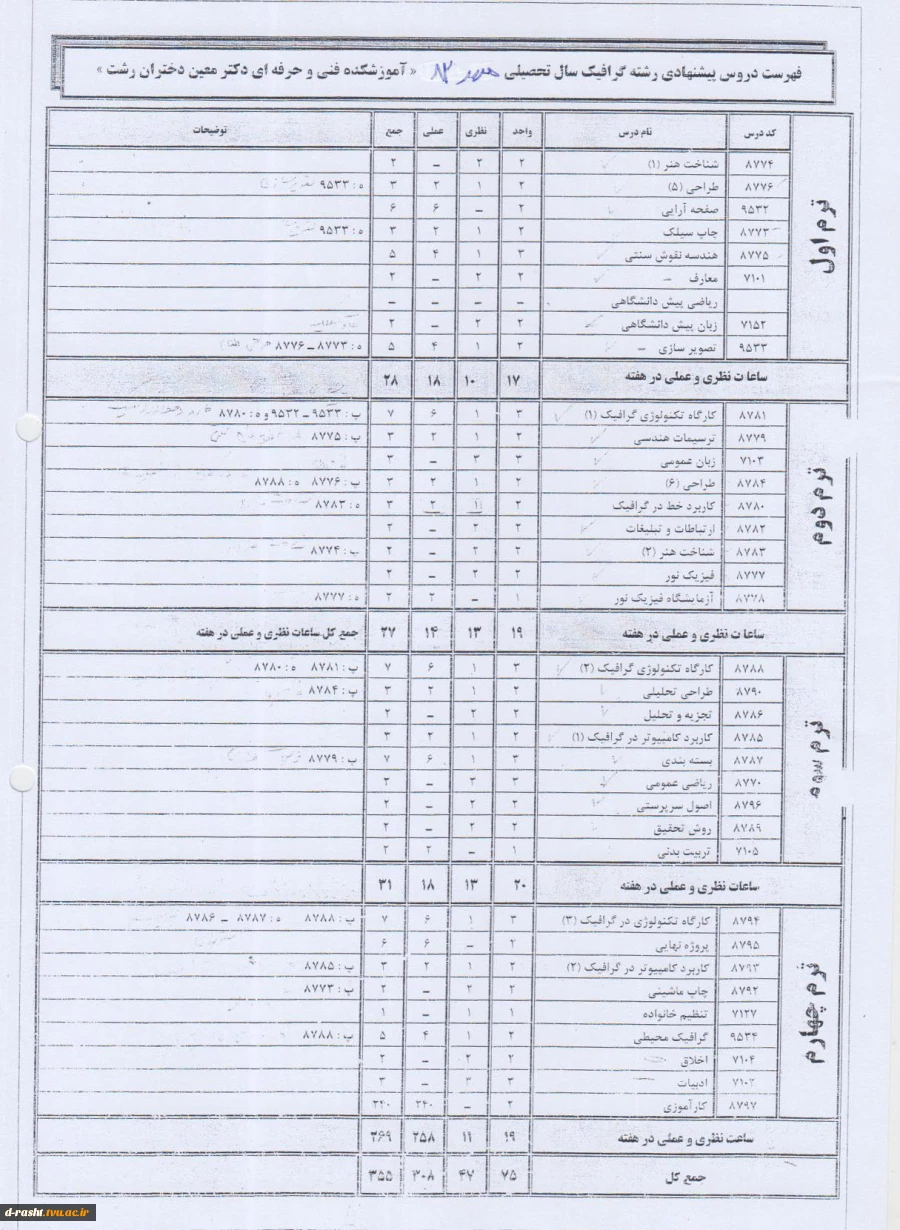 فهرست دروس پیشنهادی رشته گرافیک سال تحصیلی ۸۲ « آموزشکده فنی و حرفه ای دکتر معین دختران رشت »
کد درس نام درس واحد نظری عملی جمع توضیحات
ترم اول
۸۷۷۴ شناخت هنر (۱) ۲ ۲ ـ ۲
۸۷۷۶ طراحی (۵) ۲ ۱ ۲ ۳ ه : ۹۵۳۳
۹۵۳۲ صفحه آرایی ۲ ـ ۶ ۶
۸۷۷۳ چاپ سیلک ۲ ۱ ۲ ۳ ه : ۹۵۳۳
۸۷۷۵ هندسه نقوش سنتی ۳ ۱ ۴ ۵
۷۱۰۱ معارف ۲ ۲ ـ ۲
ریاضی پیش دانشگاهی ـ ـ ـ ـ
۷۱۵۲ زبان پیش دانشگاهی ۲ ۲ ـ ۲
۹۵۳۳ تصویر سازی ۲ ۱ ۴ ۵ ه : ۸۷۷۳ ـ ۸۷۷۶
ساعات نظری و عملی در هفته ۱۷ ۱۰ ۱۸ ۲۸
ترم دوم
۸۷۸۱ کارگاه تکنولوژی گرافیک (۱) ۳ ۱ ۶ ۷ ب : ۹۵۳۳ ـ ۹۵۳۲ و ه : ۸۷۸۰
۸۷۷۹ ترسیمات هندسی ۲ ۱ ۲ ۳ ب : ۸۷۷۵
۷۱۰۳ زبان عمومی ۳ ۳ ـ ۳
۸۷۸۴ طراحی (۶) ۲ ۱ ۲ ۳ ب : ۸۷۷۶ ه : ۸۷۸۸
۸۷۸۰ کاربرد خط در گرافیک ۲ ۱ ۲ ۳ ه : ۸۷۸۳
۸۷۸۲ ارتباطات و تبلیغات ۲ ۲ ـ ۲
۸۷۸۳ شناخت هنر (۲) ۲ ۲ ـ ۲ ب : ۸۷۷۴
۸۷۷۷ فیزیک نور ۲ ۲ ـ ۲
۸۷۷۸ آزمایشگاه فیزیک نور ۱ ـ ۲ ۲ ه : ۸۷۷۷
ساعات نظری و عملی در هفته ۱۹ ۱۳ ۱۴ ۲۷ جمع کل ساعات نظری و عملی در هفته
ترم سوم
۸۷۸۸ کارگاه تکنولوژی گرافیک (۲) ۳ ۱ ۶ ۷ ب : ۸۷۸۱ ه : ۸۷۸۰
۸۷۹۰ طراحی تحلیلی ۲ ۱ ۲ ۳ ب : ۸۷۸۴
۸۷۸۶ تجزیه و تحلیل ۲ ۲ ـ ۲
۸۷۸۵ کاربرد کامپیوتر در گرافیک (۱) ۲ ۱ ۲ ۳
۸۷۸۷ بسته بندی ۳ ۱ ۶ ۷ ب : ۸۷۷۹
۸۷۷۰ ریاضی عمومی ۳ ۳ ـ ۳
۸۷۹۶ اصول سرپرستی ۲ ۲ ـ ۲
۸۷۸۹ روش تحقیق ۲ ۲ ـ ۲
۷۱۰۵ تربیت بدنی ۱ ـ ۲ ۲
ساعات نظری و عملی در هفته ۲۰ ۱۳ ۱۸ ۳۱
ترم چهارم
۸۷۹۴ کارگاه تکنولوژی در گرافیک (۳) ۳ ۱ ۶ ۷ ب : ۸۷۸۸ ه : ۸۷۸۷ ـ ۸۷۸۶
۸۷۹۵ پروژه نهایی ۲ ـ ۶ ۶
۸۷۹۳ کاربرد کامپیوتر در گرافیک (۲) ۲ ۱ ۲ ۳ ب : ۸۷۸۵
۸۷۹۲ چاپ ماشینی ۲ ۲ ـ ۲ ب : ۸۷۷۳
۷۱۲۷ تنظیم خانواده ۱ ۱ ـ ۱
۹۵۳۴ گرافیک محیطی ۲ ۱ ۴ ۵ ب : ۸۷۸۸
۷۱۰۴ اخلاق ۲ ۲ ـ ۲
۷۱۰۲ ادبیات ۳ ۳ ـ ۳
۸۷۹۷ کارآموزی ۲ ـ ۲۴۰ ۲۴۰
ساعت نظری و عملی در هفته ۱۹ ۱۱ ۲۵۸ ۲۶۹
جمع کل ۷۵ ۴۷ ۳۰۸ ۳۵۵
d-rasht.tvu.ac.ir